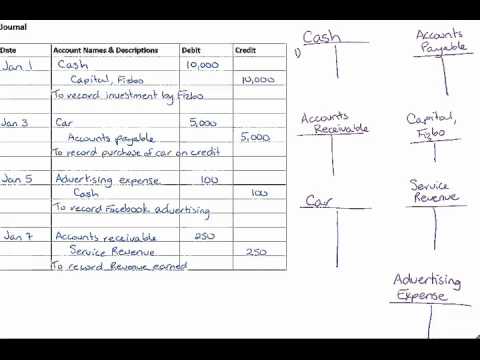 Journal
Date Account Names & Descriptions Debit Credit
Jan 1 Cash 10,000
Capital, Fizbo 10,000
To record investment by Fizbo
Jan 3 Car 5,000
Accounts payable 5,000
To record purchase of car on credit
Jan 5 Advertising expense 100
Cash 100
To record Facebook advertising
Jan 7 Accounts receivable 250
Service Revenue 250
To record Revenue earned
Cash
1)
Accounts
Payable
Accounts
Receivable
Capital,
Fizbo
Car
Service
Revenue
Advertising
Expense